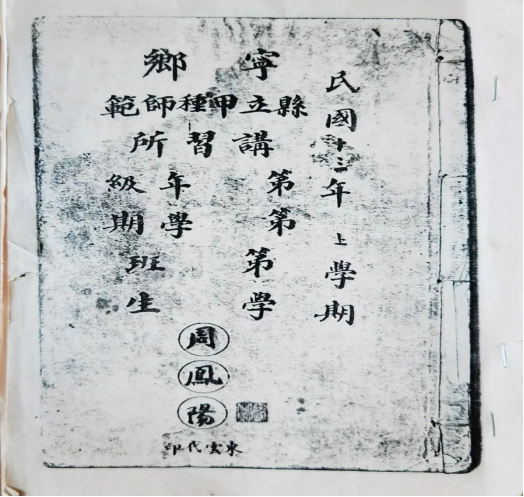 民國十三年上學期
寧鄉
縣立甲種師範
講習所
第年級
第學期
第班
學生
周鳳陽
代印